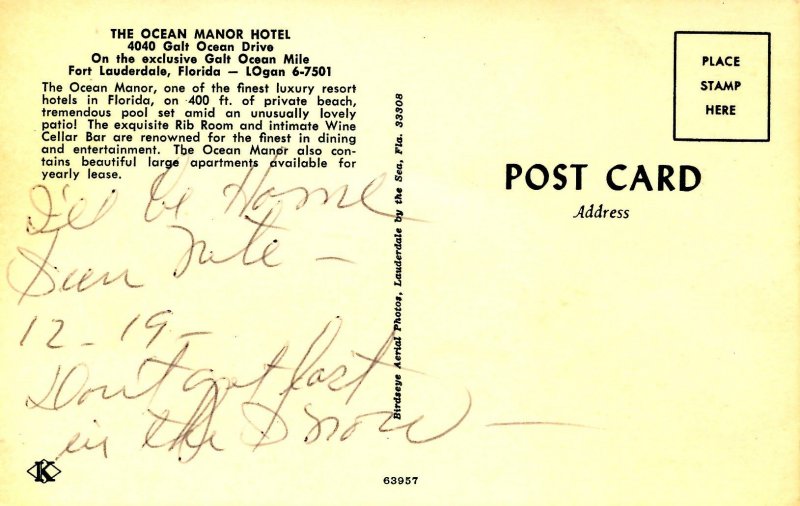 THE OCEAN MANOR HOTEL
4040 Galt Ocean Drive
On the exclusive Galt Ocean Mile
Fort Lauderdale, Florida — LOgan 6-7501
The Ocean Manor, one of the finest luxury resort
hotels in Florida, on 400 ft. of private beach,
tremendous pool set amid an unusually lovely
patio! The exquisite Rib Room and intimate Wine
Cellar Bar are renowned for the finest in dining
and entertainment. The Ocean Manor also con-
tains beautiful large apartments available for
yearly lease.
I'll be Home
Sun Nite —
12-19-
Don't get lost
in the Snow —
Birdseye Aerial Photos, Lauderdale by the Sea, Fla. 33308
PLACE
STAMP
HERE
POST CARD
Address
K
63957